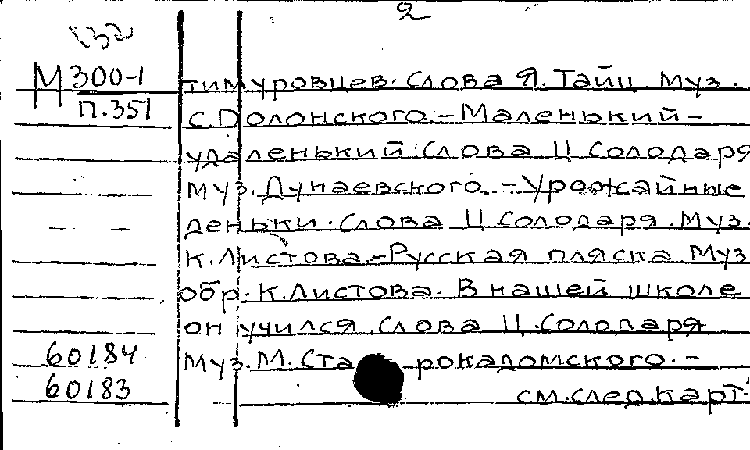 2
132
М300-1
п.351
тимуровцев. Слова Я. Тайц Муз.
С. Полонского. - Маленький -
удаленький. Слова Ц Солодаря
Муз. Дунаевского. - Урожайные
деньки. Слова Ц Солодаря. Муз.
К. Листова. - Русская пляска. Муз
обр. К. Листова. В нашей школе
он учился. Слова Ц. Солодаря
60184 Муз. М. Старокадомского. -
60183 см. след. карт.